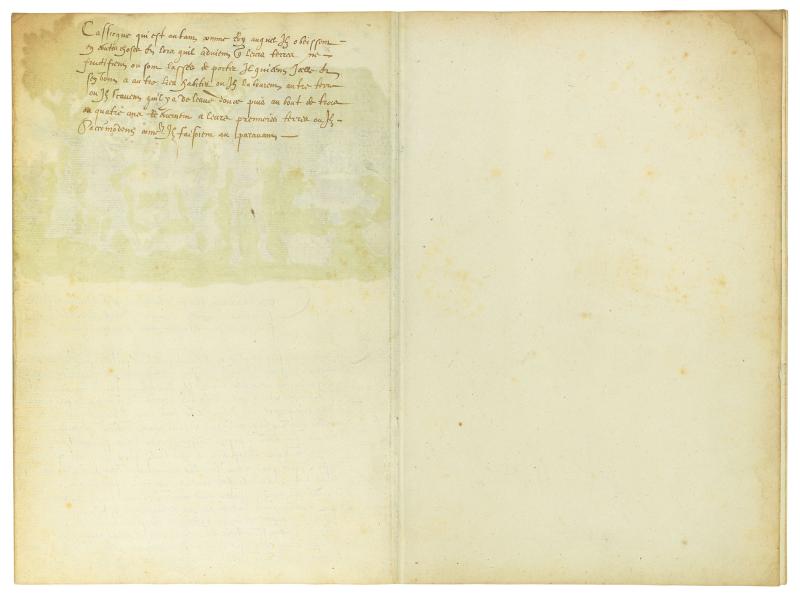 Cassicque qui est autant comme Roy auquel Ilz obeissent
En toutes choses Et lors quil advient q̃ leurs terres ne
fructifient ou sont lassées de porter Ilz quictent Icelle et
sen vont a autre lieu habiter ou Ilz labourent autre terre
ou Ilz trouvent quil y a de leaue doulce puis au bout de trois
ou quatre ans Retournent a leurs premieres terres ou Ilz
Saccōmodent comē Ilz faisoient au paravant